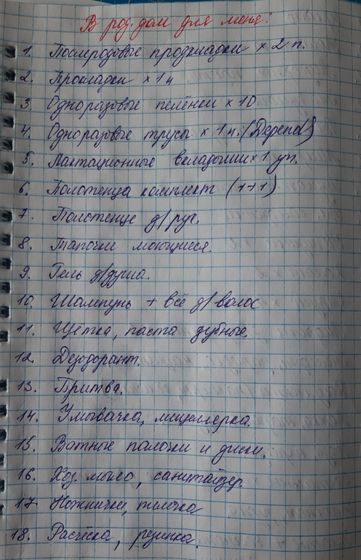 В род. дом для меня:
1. Послеродовые прокладки × 2 п.
2. Прокладки × 1 п
3. Одноразовые пелёнки × 10
4. Одноразовые трусы × 1 п. (Depend)
5. Лактационные вкладыши × 1 уп.
6. Полотенца комплект (1+1)
7. Полотенце д/рук.
8. Тапочки моющиеся.
9. Гель д/душа.
10. Шампунь + всё д/волос
11. Щётка, паста зубные.
12. Дезодорант.
13. Бритва.
14. Умывачка, мицеллярка.
15. Ватные палочки и диски.
16. Хоз. мыло, санитайзер
17. Ножнички, пилочка
18. Расчёска, резинка.